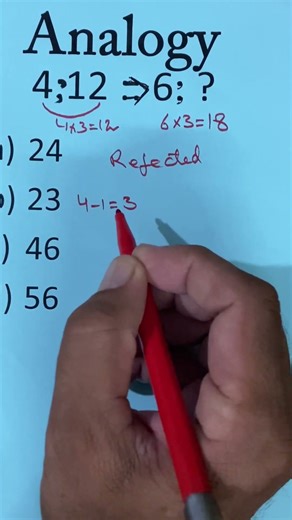 Analogy
4;12 ⇒6; ?
4×3=12 6×3=18
) 24
Rejected
) 23 4-1=3
) 46
) 56